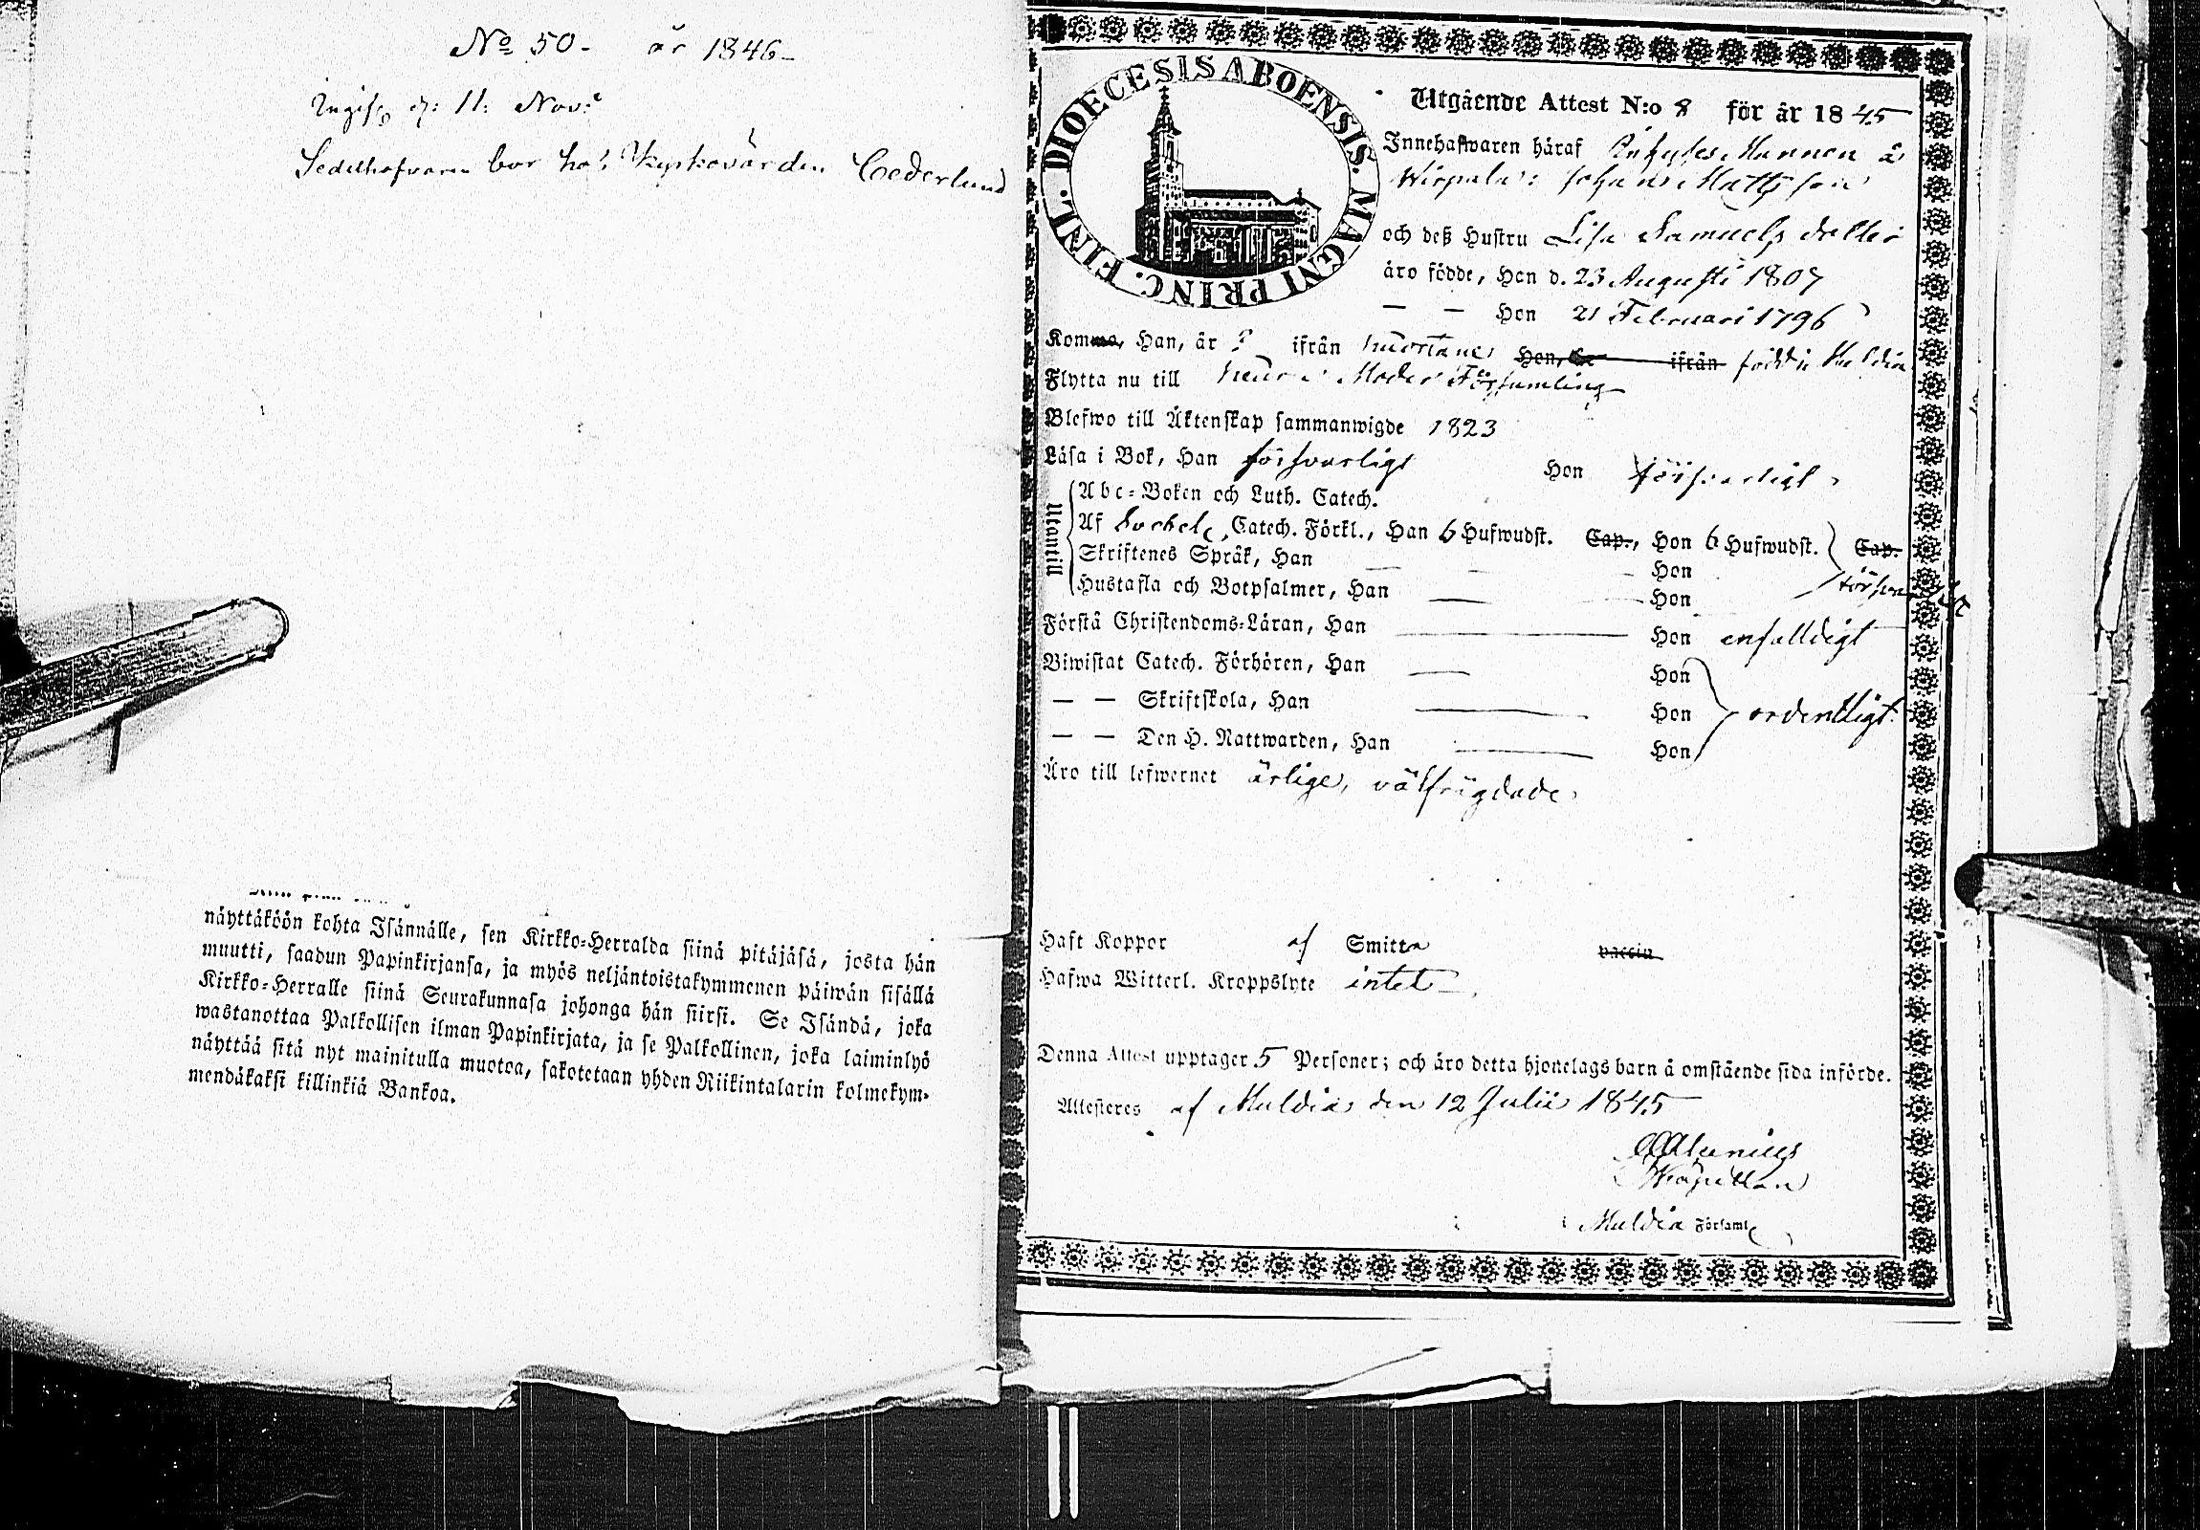 No 50. år 1846
d. 11. Nov.
Sedelhafvaren bor hos Kyrkovärden Cederlund
näyttäköön kohta Isännälle, sen Kirkko-Herralda siinä pitäjäsä, josta hän
muutti, saadun Papinkirjansa, ja myös neljäntoistakymmenen päiwän sisällä
Kirkko-Herralle siinä Seurakunnasa johonga hän siirsi. Se Isändä, joka
wastanottaa Palkollisen ilman Papinkirjata, ja se Palkollinen, joka laiminlyö
näyttää sitä nyt mainitulla muotoa, sakotetaan yhden Riikintalarin kolmekym-
mendäkaksi killinkiä Bankoa.
DIOECESIS ABOENSIS. MAGNI PRINC. FINL.
Utgående Attest N:o 8 för år 1845
Innehafwaren häraf Mannen å
Johan Mattsson
och deß Hustru Lisa Samuels dotter
äro födde, Han d. 23 Augusti 1807
— — Hon 21 Februari 1796
Komma, Han, år ifrån Hon, ifrån född i Muldia
Flytta nu till Moder Församling
Blefwo till Äktenskap sammanwigde 1823
Läsa i Bok, Han försvarligt Hon försvarligt
Utantill
Abc-Boken och Luth. Catech.
Af Catech. Förkl., Han 6 Hufwudst. Cap., Hon 6 Hufwudst. Cap.
Skriftenes Språk, Han — Hon
Hustafla och Botpsalmer, Han — Hon
Förstå Christendoms-Läran, Han — Hon enfalldigt
Biwistat Catech. Förhören, Han — Hon
— — Skriftskola, Han — Hon ordentligt
— — Den H. Nattwarden, Han — Hon
Äro till lefwernet ärlige, välfrägdade
Haft Koppor af Smitta vaccin
Hafwa Witterl. Kroppslyte intet
Denna Attest upptager 5 Personer; och äro detta hjonelags barn å omstående sida införde.
Attesteras af Muldia den 12 Julii 1845
Alcenius
Kapellan
i Muldia Församl